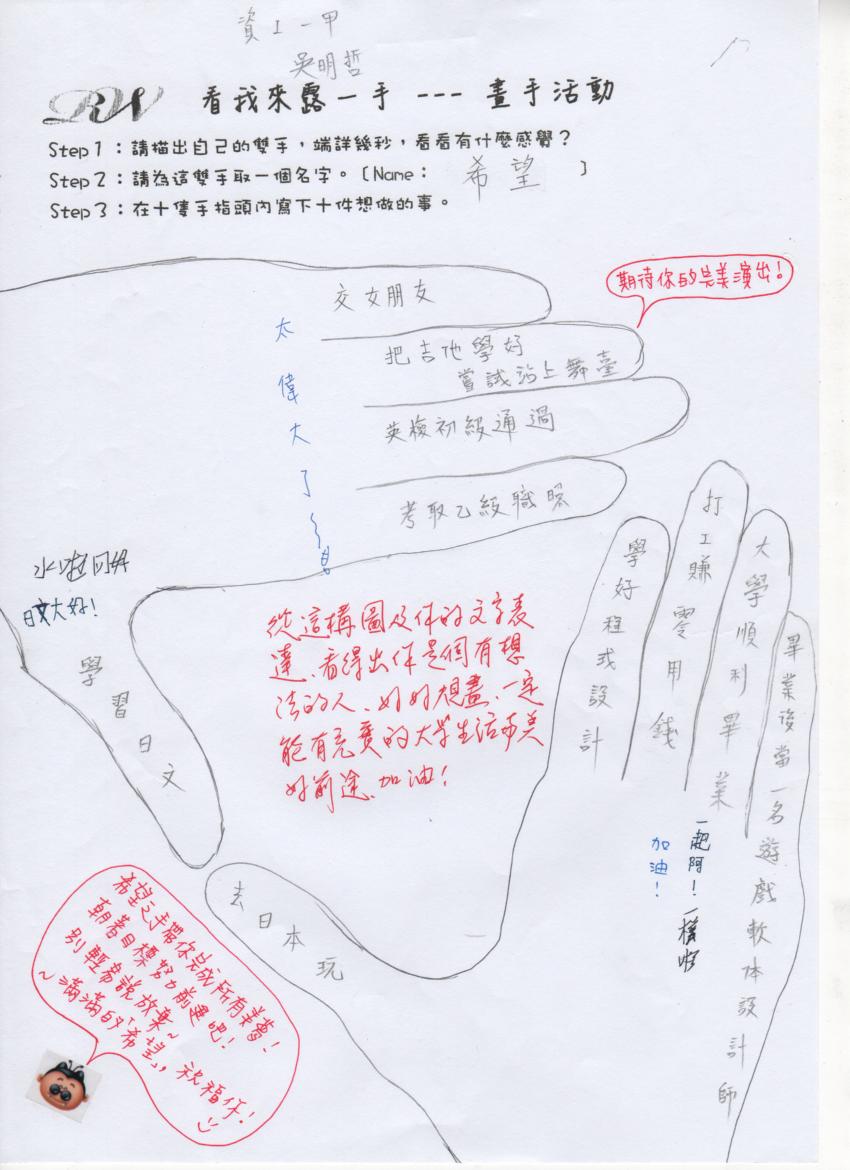 資工一甲
吳明哲
RW 看我來露一手 --- 畫手活動
Step 1：請描出自己的雙手，端詳幾秒，看看有什麼感覺？
Step 2：請為這雙手取一個名字。〔Name： 希望 〕
Step 3：在十隻手指頭內寫下十件想做的事。
期待你的完美演出！
交女朋友
把吉他學好
嘗試站上舞臺
英檢初級通過
考取乙級職照
太偉大了
日文大好！
學習日文
從這構圖及你的文字表
達、看得出你是個有想
法的人、好好規畫、一定
能有充實的大學生活而美
好前途、加油！
學好程式設計
打工賺零用錢
大學順利畢業
畢業後當一名遊戲軟體設計師
一起阿！一樣啦
加油！
去日本玩
希望之手帶你完成所有美夢！
朝著目標努力前進吧！
別輕易說放棄~
~滿滿的「希望」，祝福你！